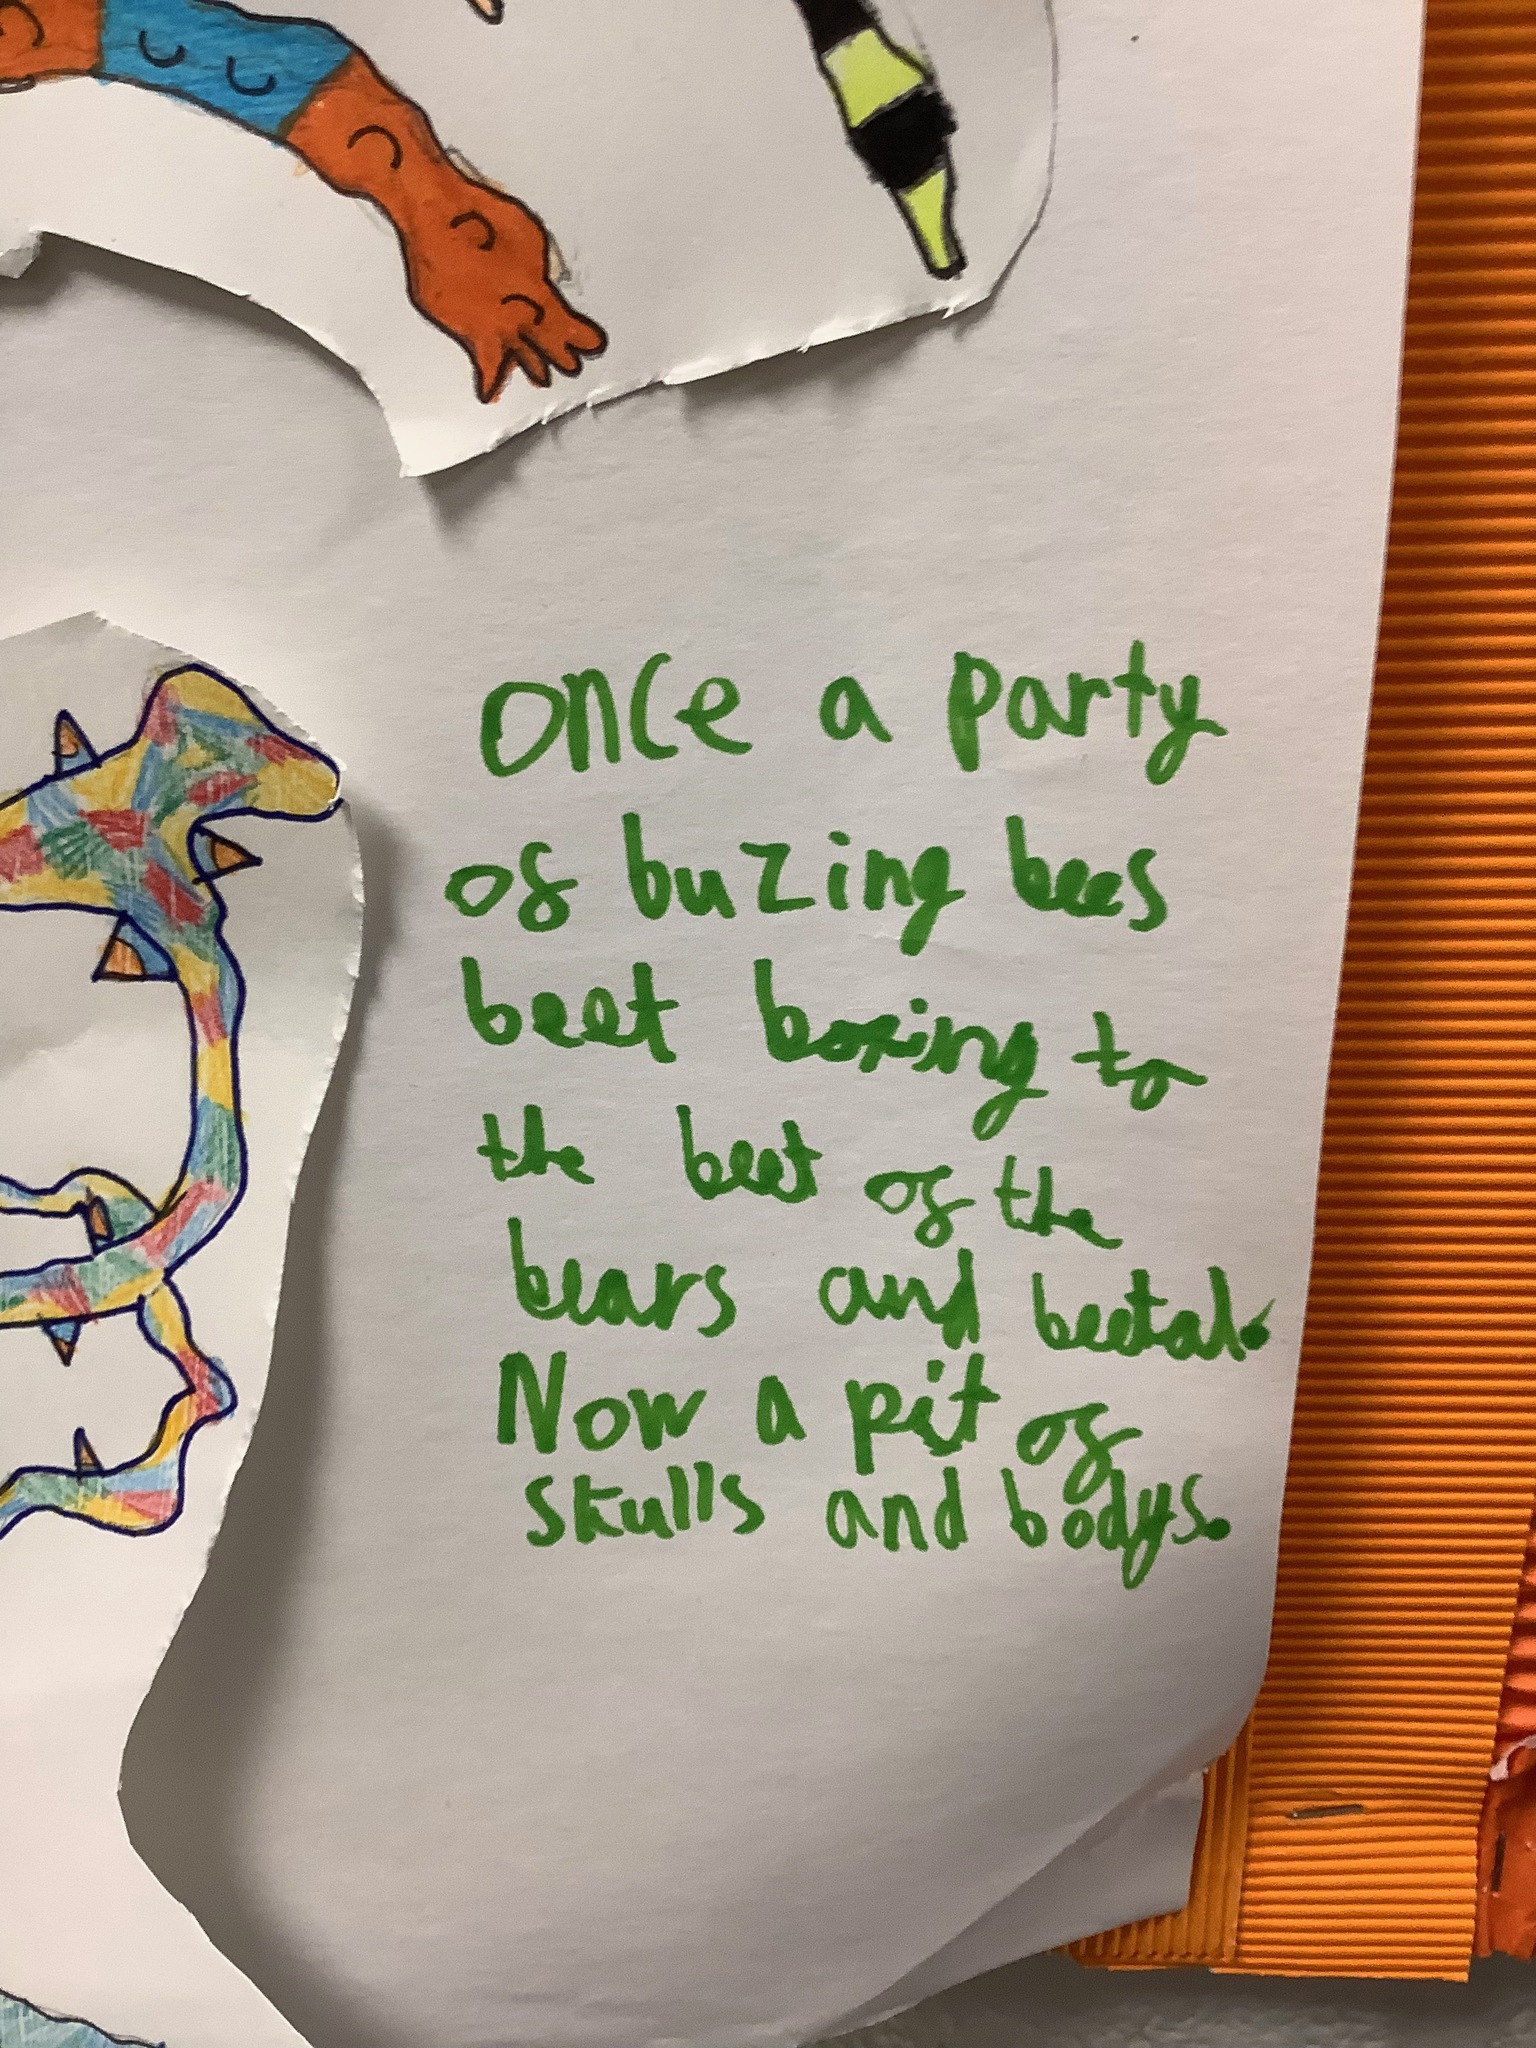 Once a party
of buzing bees
beet boxing to
the beet of the
bears and beetal.
Now a pit of
skulls and bodys.